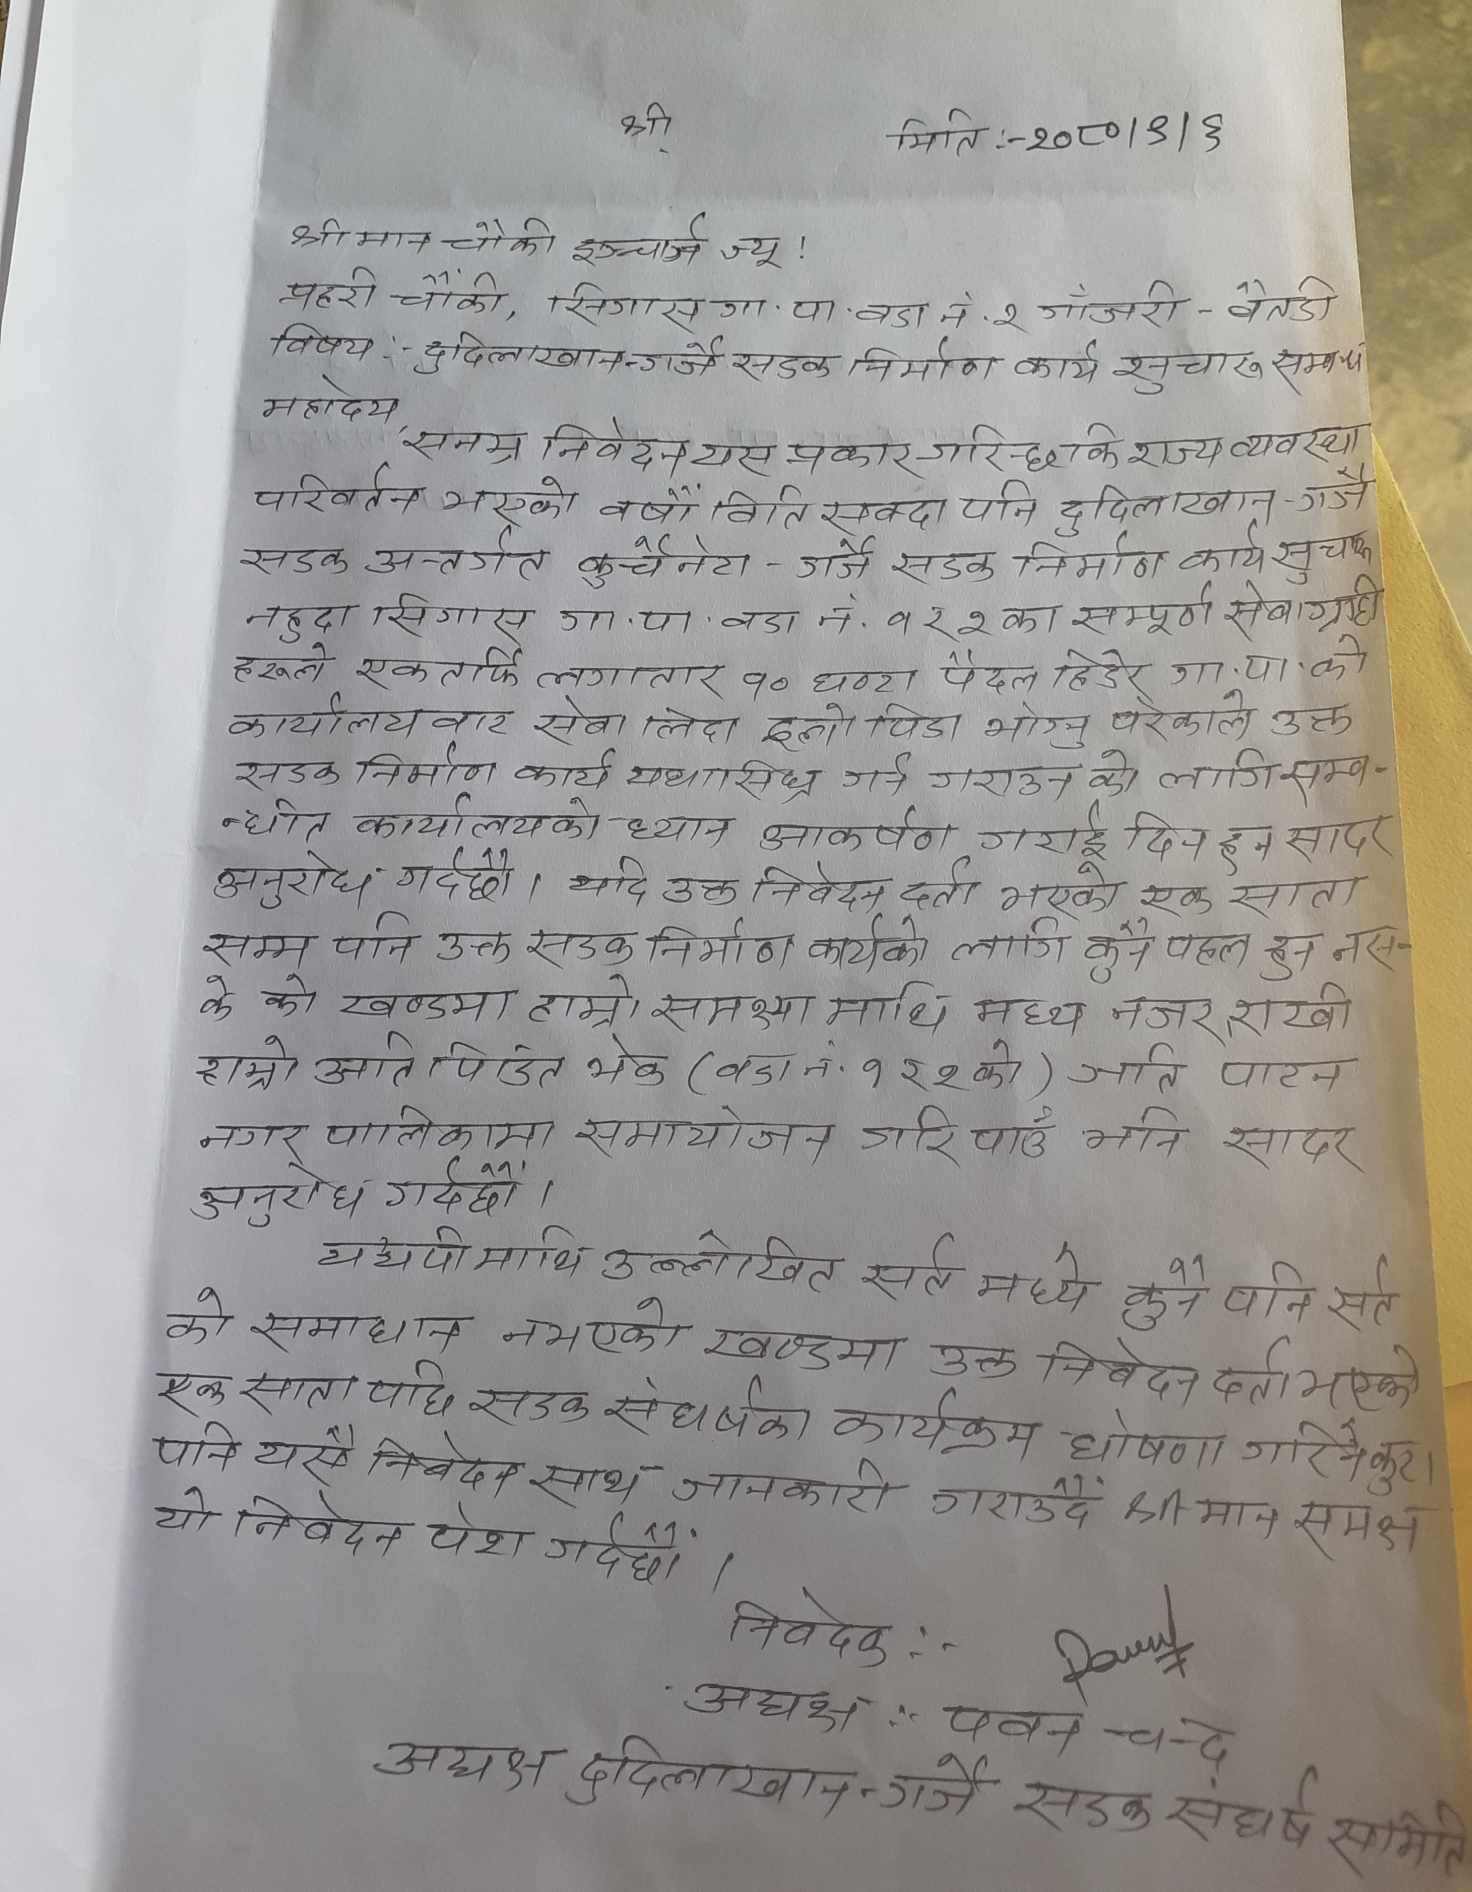 श्री
मिति :- २०८०।९।६
श्रीमान चौकी इञ्चार्ज ज्यू !
प्रहरी चौंकी, सिगास गा.पा. वडा नं. २ गाँजरी - बैतडी
विषय :- दुदिलाखान-गर्जै सडक निर्माण कार्य सुचारु सम्बन्धं
महादेय,
सनम्र निवेदन यस प्रकार गरिन्छ कि राज्य व्यवस्था
परिवर्तन भएको वर्षौं विति सक्दा पनि दुदिलाखान-गर्जै
सडक अन्तर्गत कुर्चेनेटा - गर्जै सडक निर्माण कार्य सुचारु
नहुदा सिगास गा.पा. वडा नं. १ र २ का सम्पूर्ण सेवाग्राही
हरूले एकतर्फि लगातार १० घण्टा पैदल हिडेर गा.पा. को
कार्यालय वाट सेवा लिदा ठूलो पिडा भोग्नु परेकाले उक्त
सडक निर्माण कार्य यथासिघ्र गर्न गराउन को लागि सम्व-
न्धीत कार्यालयको ध्यान आकर्षण गराई दिन हुन सादर
अनुरोध गर्दछौं। यदि उक्त निवेदन दर्ता भएको एक साता
सम्म पनि उक्त सडक निर्माण कार्यको लागि कुनै पहल हुन नस-
के को खण्डमा हाम्रो समस्या माथि मध्य नजर राखी
हाम्रो अति पिडित भेक (वडा नं. १ र २ को) जति पाटन
नगर पालिकामा समायोजन गरि पाउँ भनि सादर
अनुरोध गर्दछौं।
यद्यपी माथि उल्लेखित सर्त मध्ये कुनै पनि सर्त
को समाधान नभएको खण्डमा उक्त निवेदन दर्ता भएको
एक साता पछि सडक संघर्षका कार्यक्रम घोषणा गरिने कुरा
पनि यसै निवेदन साथ जानकारी गराउदै श्रीमान समक्ष
यो निवेदन पेश गर्दछौं।
निवेदक :-
अध्यक्ष :- पवन चन्द
अध्यक्ष दुदिलाखान-गर्जै सडक संघर्ष समिति